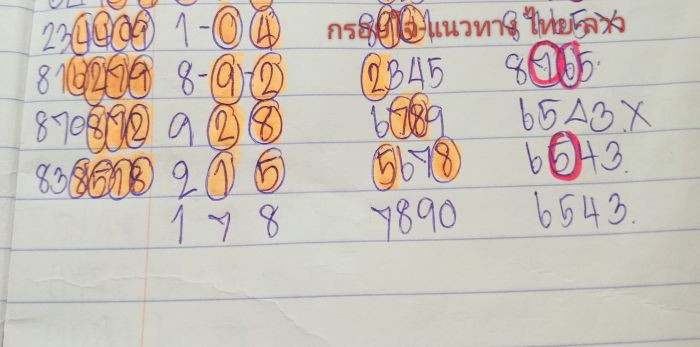 234409 1-04
กรองใจ-แนวทาง ไทย-ลาว
816279 8-9-2 2345 8765.
870872 928 6789 6543.X
838578 215 5678 6543.
178 7890 6543.